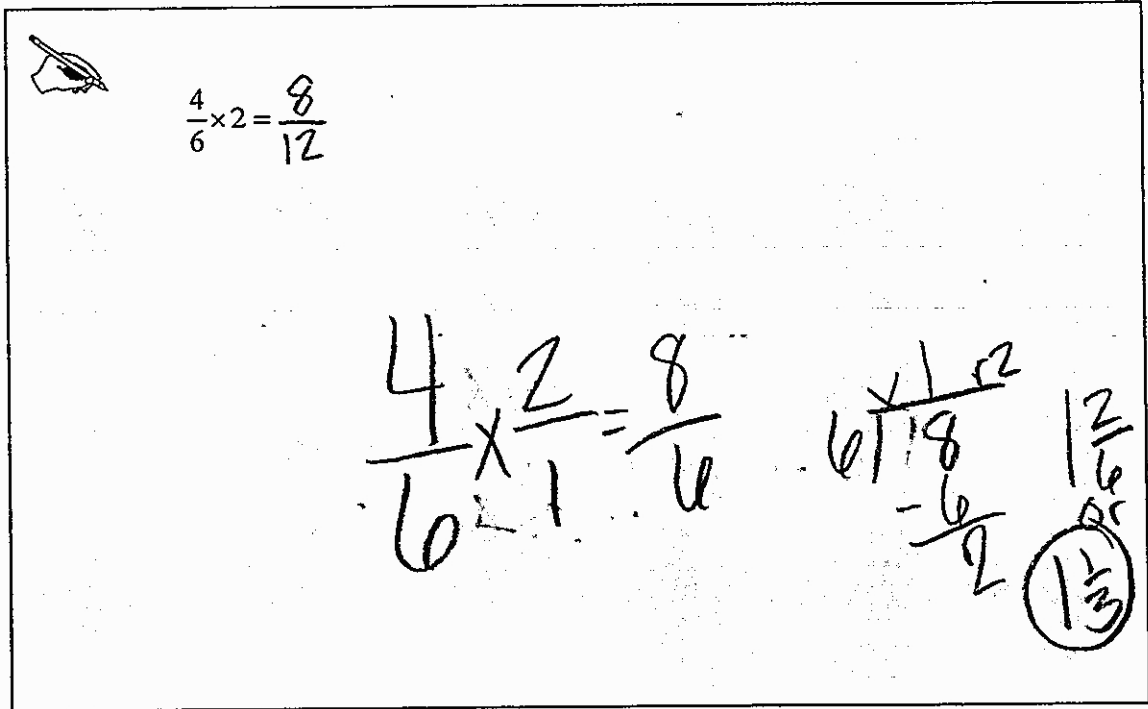 4/6 × 2 = 8/12
4/6 x 2/1 = 8/6
1 r2
6)8
- 6
2
1 2/6
or
1 1/3